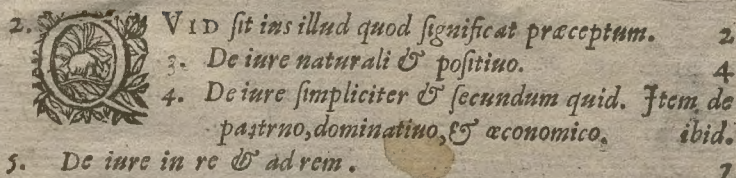 2. QVID ſit ius illud quod ſignificat præceptum. 2
3. De iure naturali & poſitiuo. 4
4. De iure ſimpliciter & ſecundum quid. Item de
paſtrno, dominatiuo, & œconomico. ibid.
5. De iure in re & ad rem. 7